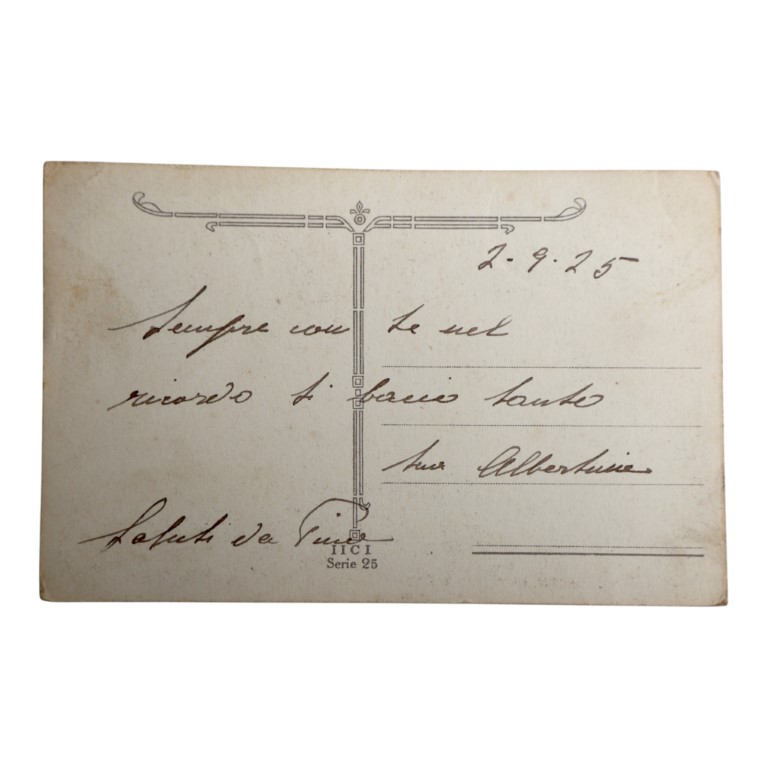 2-9-25
Sempre con te nel
ricordo ti bacio tanto
tua Albertina
Saluti da Pina
IICI
Serie 25